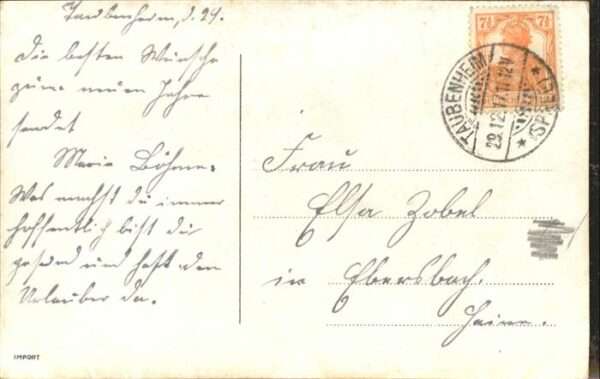 Taubenheim, d. 29.
Die besten Wünsche
zum neuen Jahre
sendet
Maria Böhme.
Was machst du immer
hoffentlich bist du
gesund und hast den
Urlauber da.
IMPORT
7½ 7½
TAUBENHEIM
29.12.17. 11-12V
(SPREE)
Frau
Elsa Zobel
in Ebersbach.